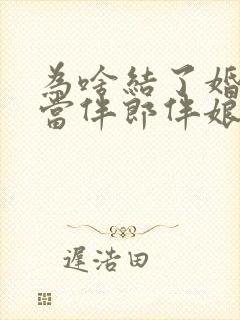 為啥結了婚
當伴郎伴娘
遲浩田